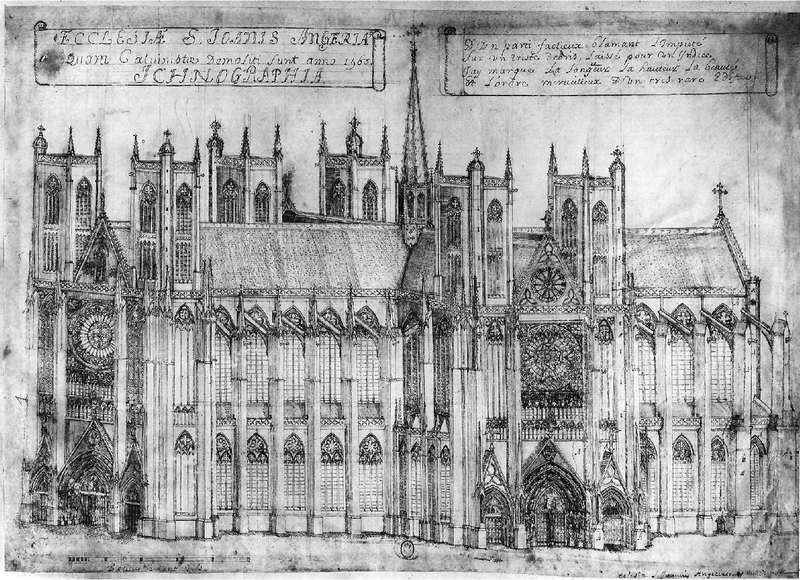 ECCLESIÆ S. JOANIS ANGERIA
Quam Calvinistæ Demoliti sunt anno 1568.
ICHNOGRAPHIA
D'un parti factieux blamant L'Impieté
Sur un triste debris, laissé pour un Indice,
J'ay marqué La longueur La hauteur La beauté
Et L'ordre merveilleux D'un tres rare Edifice